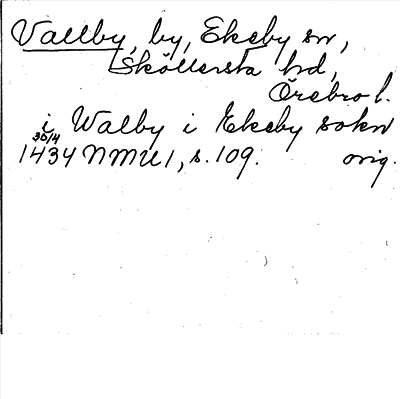 Vallby, by, Ekeby sn,
Sköllersta hd,
Örebro l.
i Walby i Ekeby sokn
30/4
1434 NMU 1, s. 109. orig.